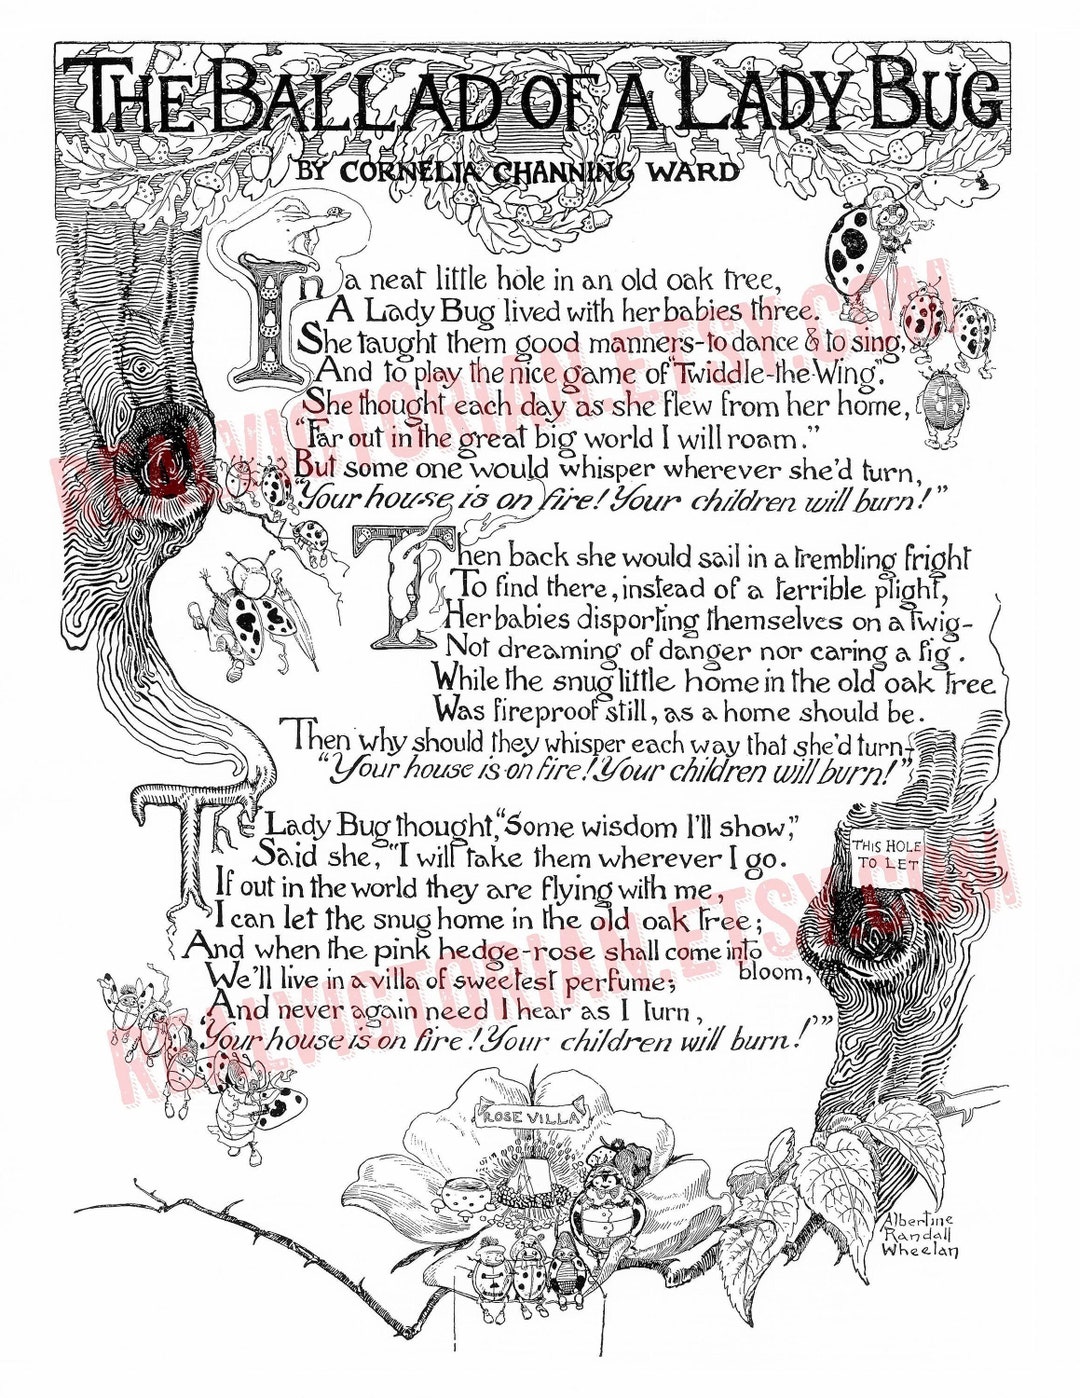 THE BALLAD OF A LADY BUG
BY CORNELIA CHANNING WARD
In a neat little hole in an old oak tree,
A Lady Bug lived with her babies three.
She taught them good manners-to dance & to sing,
And to play the nice game of "Twiddle-the-Wing".
She thought each day as she flew from her home,
"Far out in the great big world I will roam."
But some one would whisper wherever she'd turn,
"Your house is on fire! Your children will burn!"
Then back she would sail in a trembling fright
To find there, instead of a terrible plight,
Her babies disporting themselves on a twig-
Not dreaming of danger nor caring a fig.
While the snug little home in the old oak tree
Was fireproof still, as a home should be.
Then why should they whisper each way that she'd turn-
"Your house is on fire! Your children will burn!"
The Lady Bug thought, "Some wisdom I'll show,"
Said she, "I will take them wherever I go.
If out in the world they are flying with me,
I can let the snug home in the old oak tree;
And when the pink hedge-rose shall come into
bloom,
We'll live in a villa of sweetest perfume;
And never again need I hear as I turn,
'Your house is on fire! Your children will burn!'"
THIS HOLE
TO LET
ROSE VILLA
Albertine
Randall
Wheelan
REALVICTORIAN.ETSY.COM
REALVICTORIAN.ETSY.COM